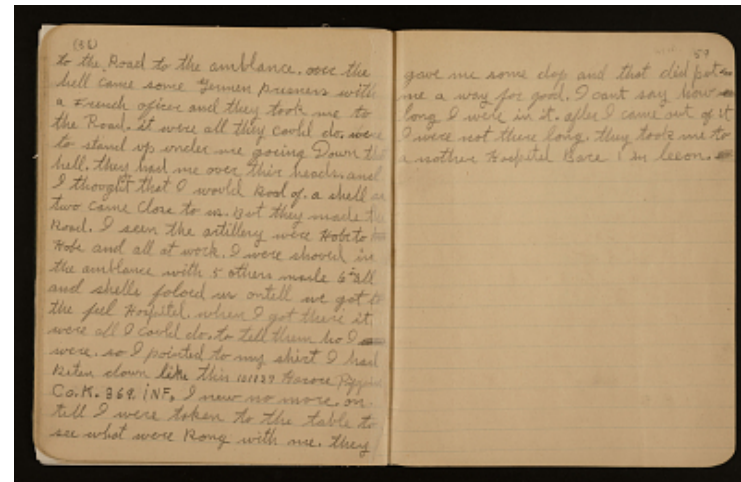 (56)
to the Road to the amblance. over the
hell came some Germen presners with
a French oficer and they took me to
the Road. it were all they coold do. were
to stand up under me gocing Down the
hell. they had me over thir heads. and
I thought that I woold Rool of. a shell or
two came Close to us. But they made the
Road. I seen the artillery were Hobe to
Hobe and all at work. I were shoved in
the amblance with 5 others made 6 all
and shells foloed us ontell we got to
the feel Hospitel. when I got there it
were all I coold do. to tell them ho I
were. so I pointed to my shirt I had
Riten down like this 101127 Horace Pippin
Co. K. 369. INF. I new no more. on
tell I were taken to the table to
see what were Rong with me. they
59
gave me some dop and that did put
me a way for good. I cant say how
long I were in it. after I came out of it
I were not there long. they took me to
a nother Hospitel Bace 1 in leeon.